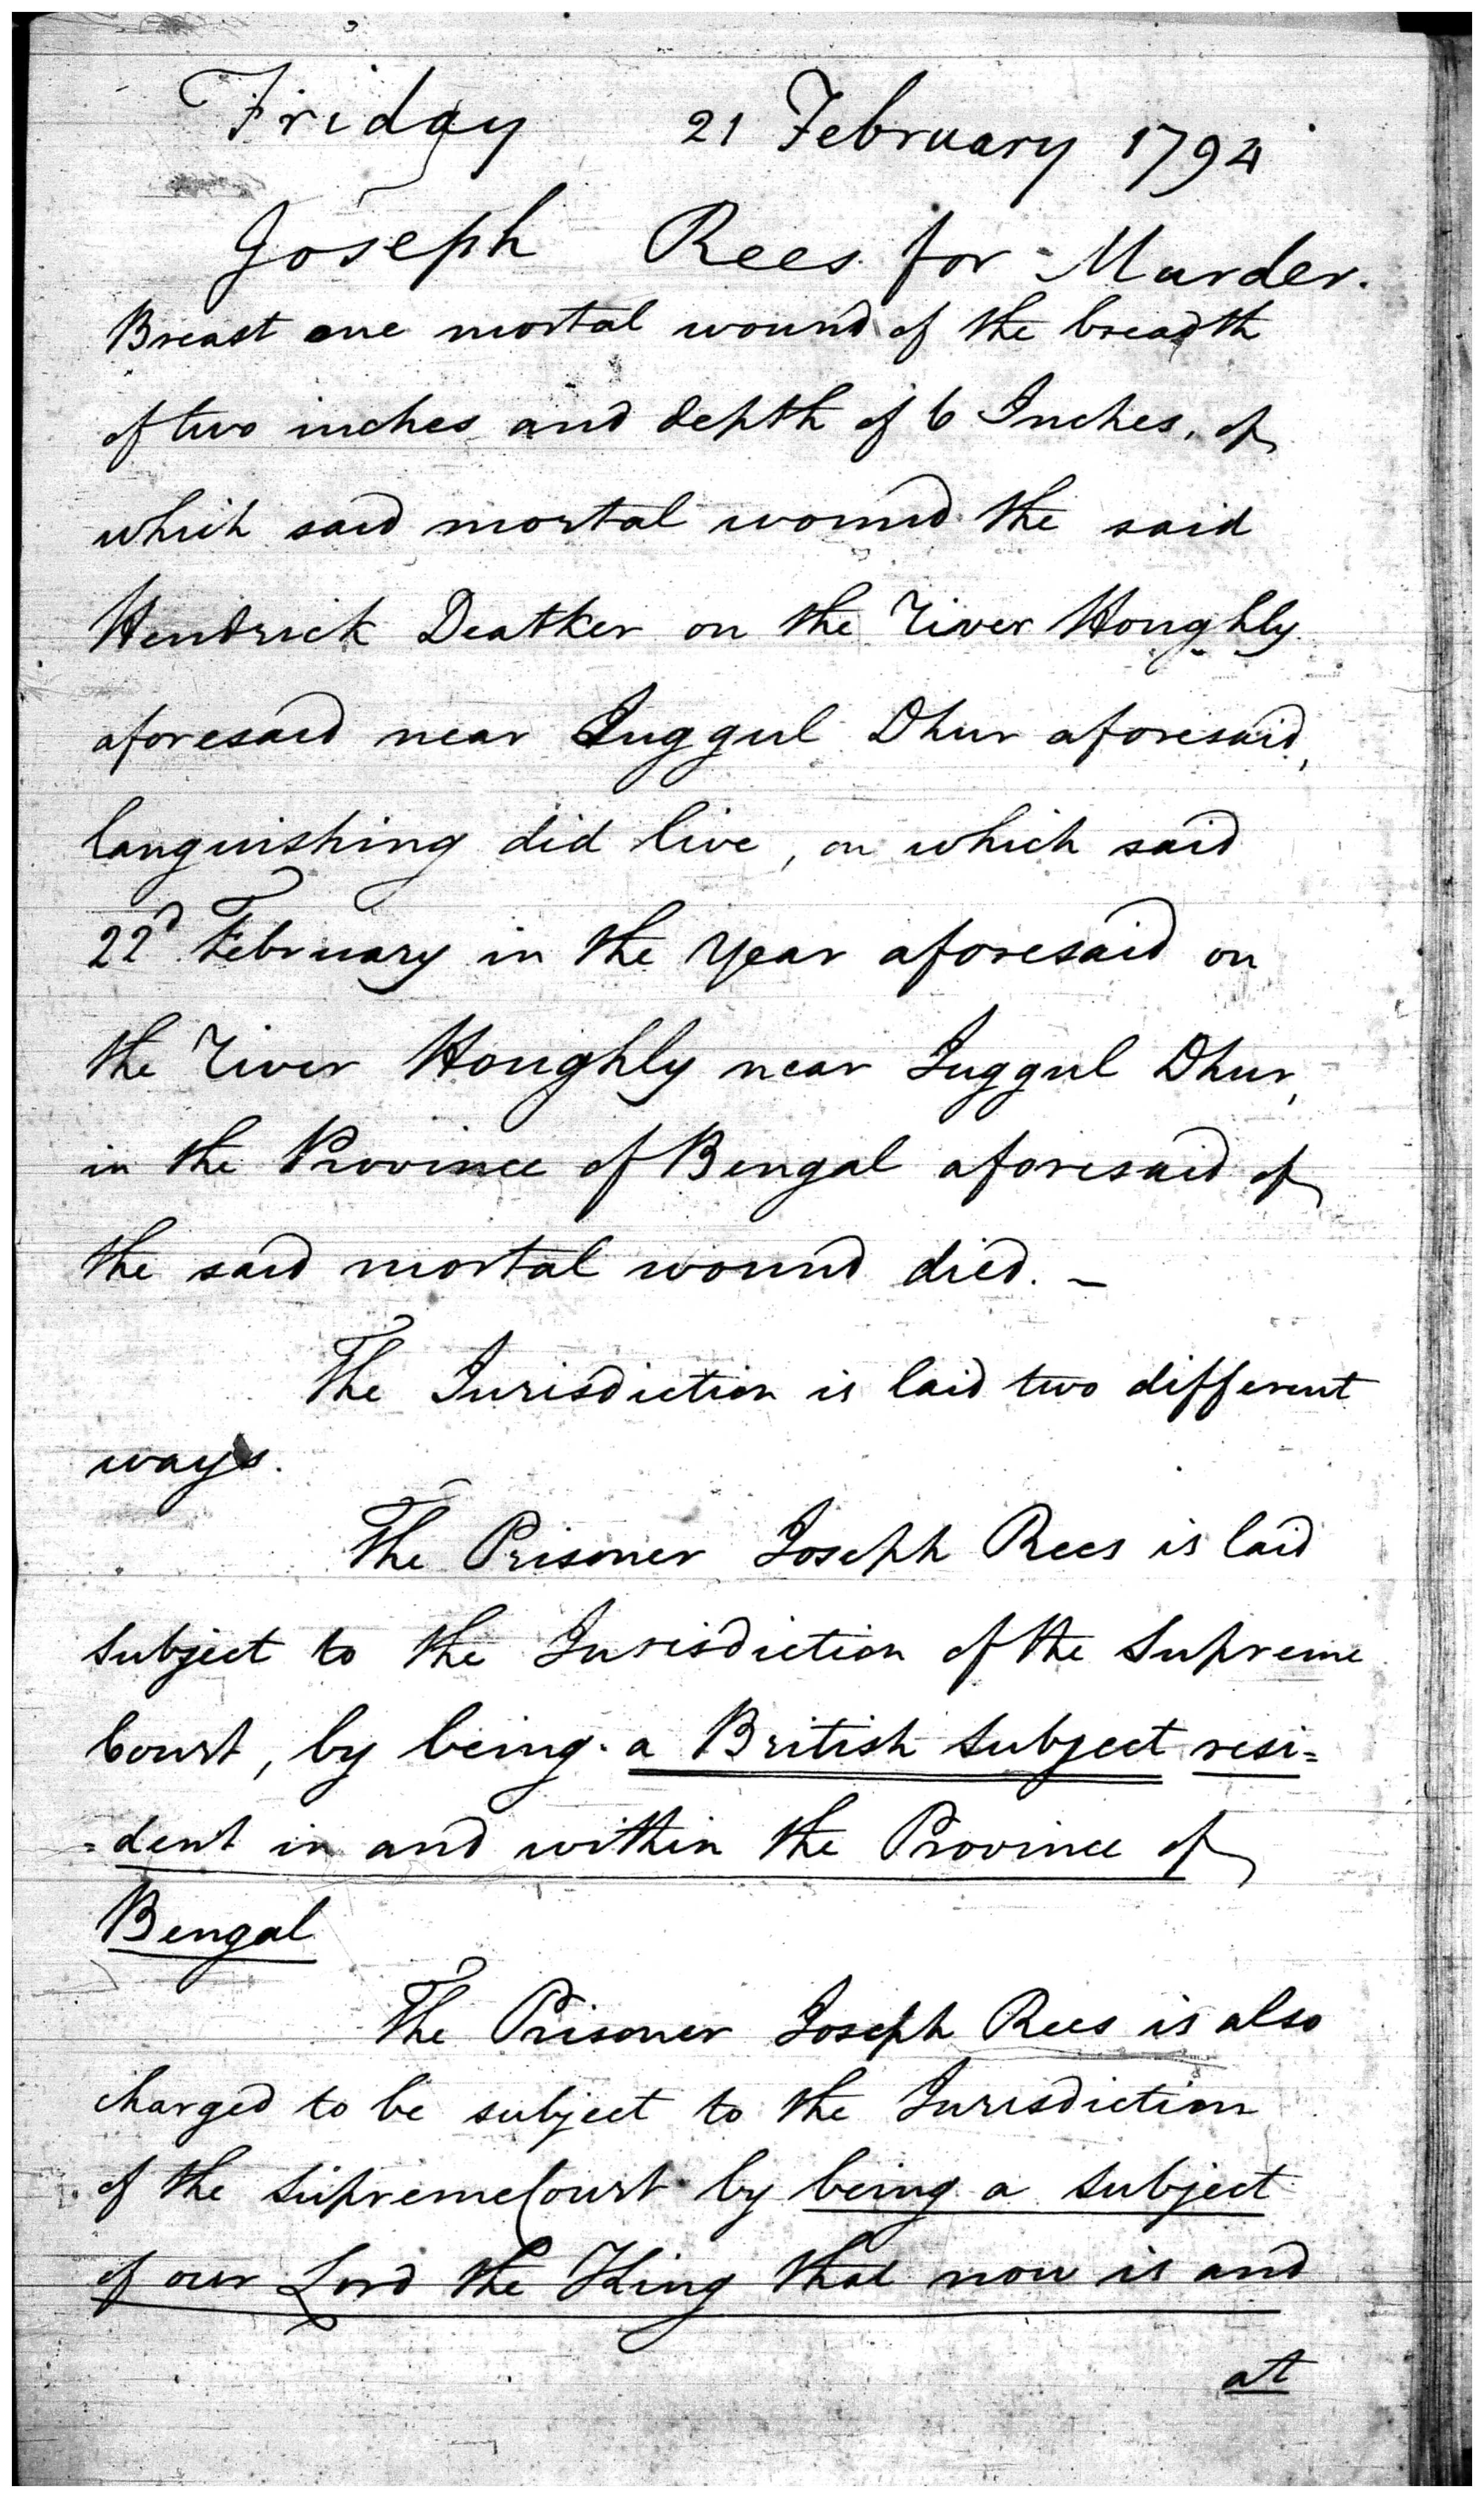 Friday 21 February 1794
Joseph Rees for Murder.
Breast one mortal wound of the breadth
of two inches and depth of 6 Inches, of
which said mortal wound the said
Hendrick Deatker on the River Houghly
aforesaid near Juggul Dhur aforesaid,
languishing did live, on which said
22d February in the year aforesaid on
the River Houghly near Juggul Dhur,
in the Province of Bengal aforesaid of
the said mortal wound died. —
The Jurisdiction is laid two different
ways.
The Prisoner Joseph Rees is laid
subject to the Jurisdiction of the Supreme
Court, by being a British subject resi=
=dent in and within the Province of
Bengal
The Prisoner Joseph Rees is also
charged to be subject to the Jurisdiction
of the Supreme Court by being a subject
of our Lord the King that now is and
at